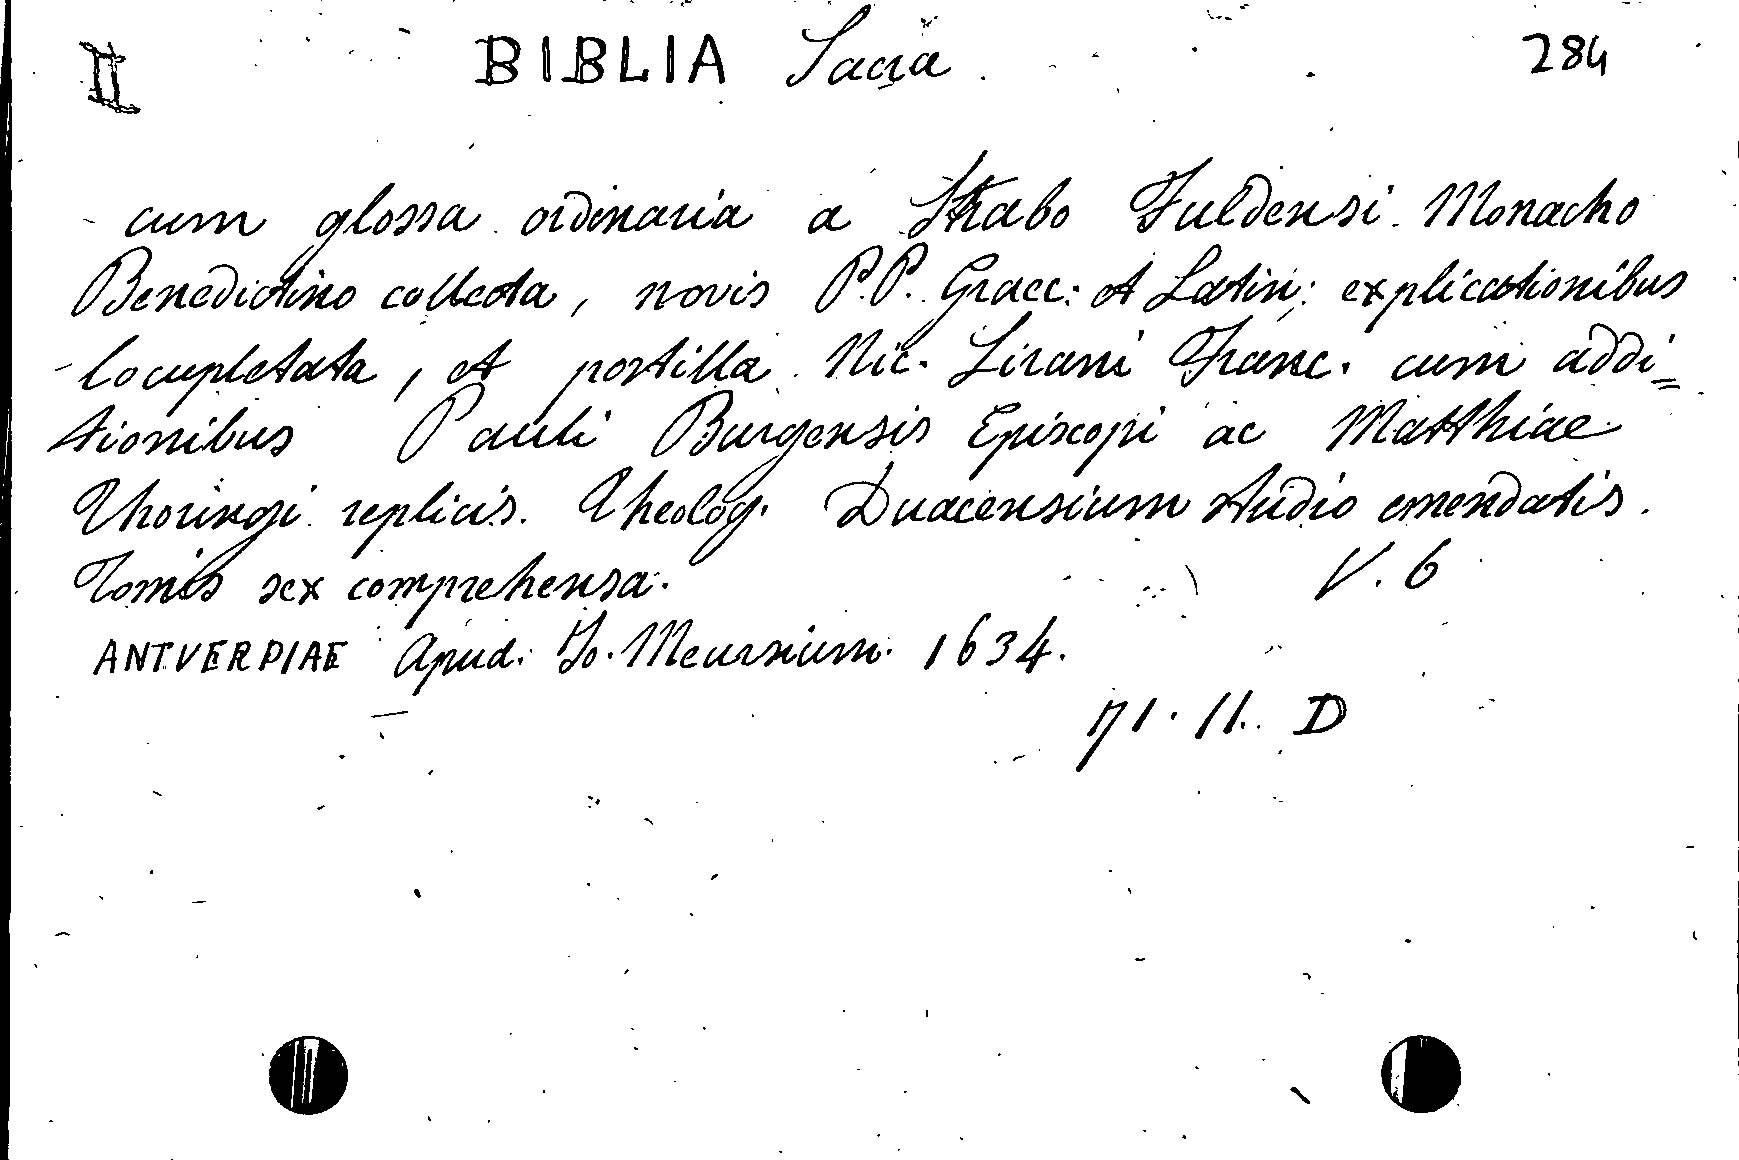 II BIBLIA Sacra 284
cum glossa ordinaria a Strabo Fuldensi Monacho
Benedictino collecta, novis P.P. Graec: et Latin: explicationibus
locupletata, et postilla Nic. Lirani Franc. cum addi=
tionibus Pauli Burgensis Episcopi ac Matthiae
Thoringi replicis. Theolog. Duacensium studio emendatis.
Tomis sex comprehensa. V. 6
ANTVERPIAE Apud. Jo. Meursium. 1634.
71. 11. D